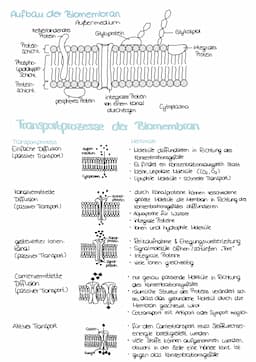 Aufbau der Biomembran
Außenmedium
Glykoprotein
Glykolipid
Protein-
schicht
Phospho-
lipiddoppel-
schicht
Protein-
schicht
integrales
Protein
peripheres Protein
integrales Protein
von einem Kanal
durchzogen
Cytoplasma
Transportprozesse der Biomembran
Transportprozess
Merkmale
Einfache Diffusion
(passiver Transport)
Moleküle diffundieren in Richtung des
Konzentrationsgefälles
Es findet ein Konzentrationsausgleich statt
kleine, unpolare Moleküle (CO₂, O₂)
lipophile Moleküle → schneller Transport
Kanalvermittelte
Diffusion
(passiver Transport)
durch Kanalproteine können verschiedene
geladene Moleküle die Membran in Richtung des
Konzentrationsgefälles diffundieren
Aquaporine für Wasser
integrale Proteine
Ionen und hydrophile Moleküle
gesteuerter Ionen-
kanal
(passiver Transport)
Reizaufnahme & Erregungsweiterleitung
Signalmoleküle öffnen
Integrale Proteine
viele Ionen gleichzeitig
Carriervermittelte
Diffusion
(passiver Transport)
nur genau passende Moleküle in Richtung
des Konzentrationsgefälles
räumliche Struktur des Proteins verändert sich
so, dass das gebundene Molekül durch die
Membran geschleust wird
Cotransport mit Antiport oder Symport möglich
Aktiver Transport
für den Carriertransport muss Stoffwechsel-
energie bereitgestellt werden
viele Stoffe können aufgenommen werden,
obwohl in der Zelle eine höhere Konz. ist
gegen das Konzentrationsgefälle